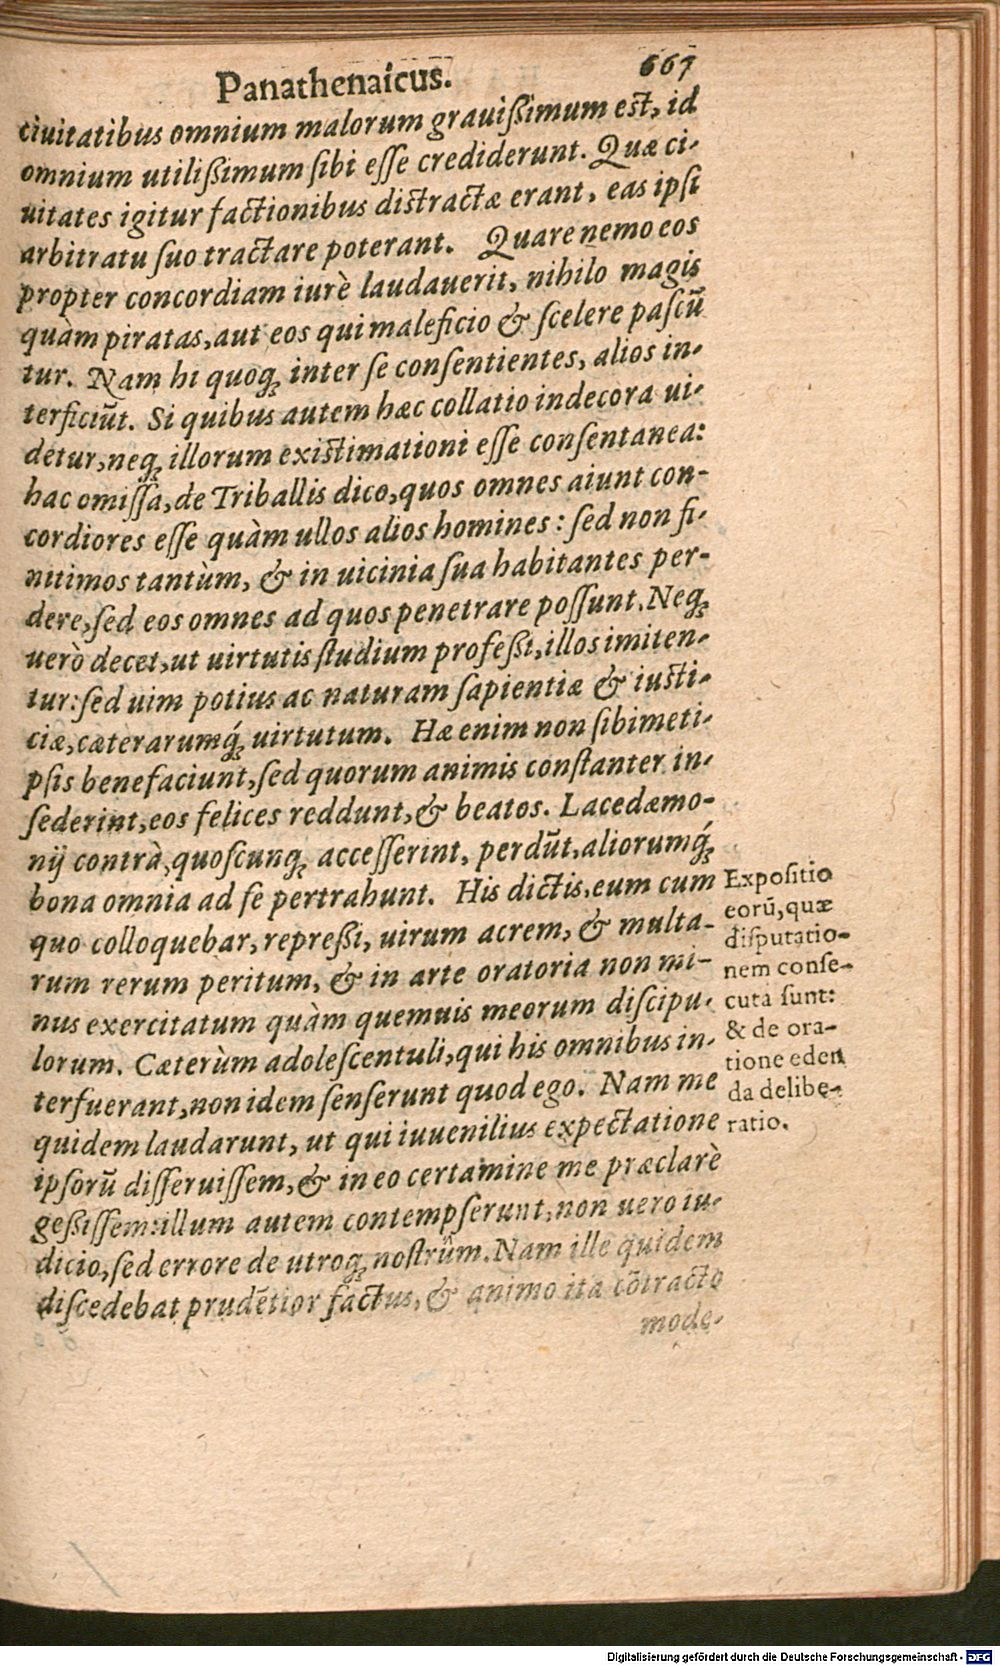 Panathenaicus. 667
ciuitatibus omnium malorum grauißimum est, id
omnium utilißimum ſibi eſſe crediderunt. Quæ ci-
uitates igitur factionibus distractæ erant, eas ipſi
arbitratu ſuo tractare poterant. Quare nemo eos
propter concordiam iurè laudauerit, nihilo magis
quàm piratas, aut eos qui maleficio & ſcelere paſcū
tur. Nam hi quoq; inter ſe conſentientes, alios in-
terficiūt. Si quibus autem hæc collatio indecora ui-
detur, neq; illorum existimationi eſſe conſentanea:
hac omiſſa, de Triballis dico, quos omnes aiunt con-
cordiores eſſe quàm ullos alios homines: ſed non fi-
nitimos tantùm, & in uicinia ſua habitantes per-
dere, ſed eos omnes ad quos penetrare poſſunt. Neq;
uerò decet, ut uirtutis ſtudium profeßi, illos imiten-
tur: ſed uim potius ac naturam ſapientiæ & iusti-
ciæ, cæterarumq́; uirtutum. Hæ enim non ſibimeti-
pſis benefaciunt, ſed quorum animis conſtanter in-
ſederint, eos felices reddunt, & beatos. Lacedæmo-
nij contrà, quoſcunq; acceſſerint, perdūt, aliorumq́;
bona omnia ad ſe pertrahunt. His dictis, eum cum
quo colloquebar, repreßi, uirum acrem, & multa-
rum rerum peritum, & in arte oratoria non mi-
nus exercitatum quàm quemuis meorum diſcipu-
lorum. Cæterùm adoleſcentuli, qui his omnibus in-
terfuerant, non idem ſenſerunt quod ego. Nam me
quidem laudarunt, ut qui iuuenilius expectatione
ipſorū diſſeruiſſem, & in eo certamine me præclarè
geßiſſem: illum autem contempſerunt, non uero iu-
dicio, ſed errore de utroq; noſtrûm. Nam ille quidem
diſcedebat prudētior factus, & animo ita cōtracto
mode-
Expoſitio
eorū, quæ
diſputatio-
nem conſe-
cuta ſunt:
& de ora-
tione eden
da delibe-
ratio.
Digitalisierung gefördert durch die Deutsche Forschungsgemeinschaft - DFG